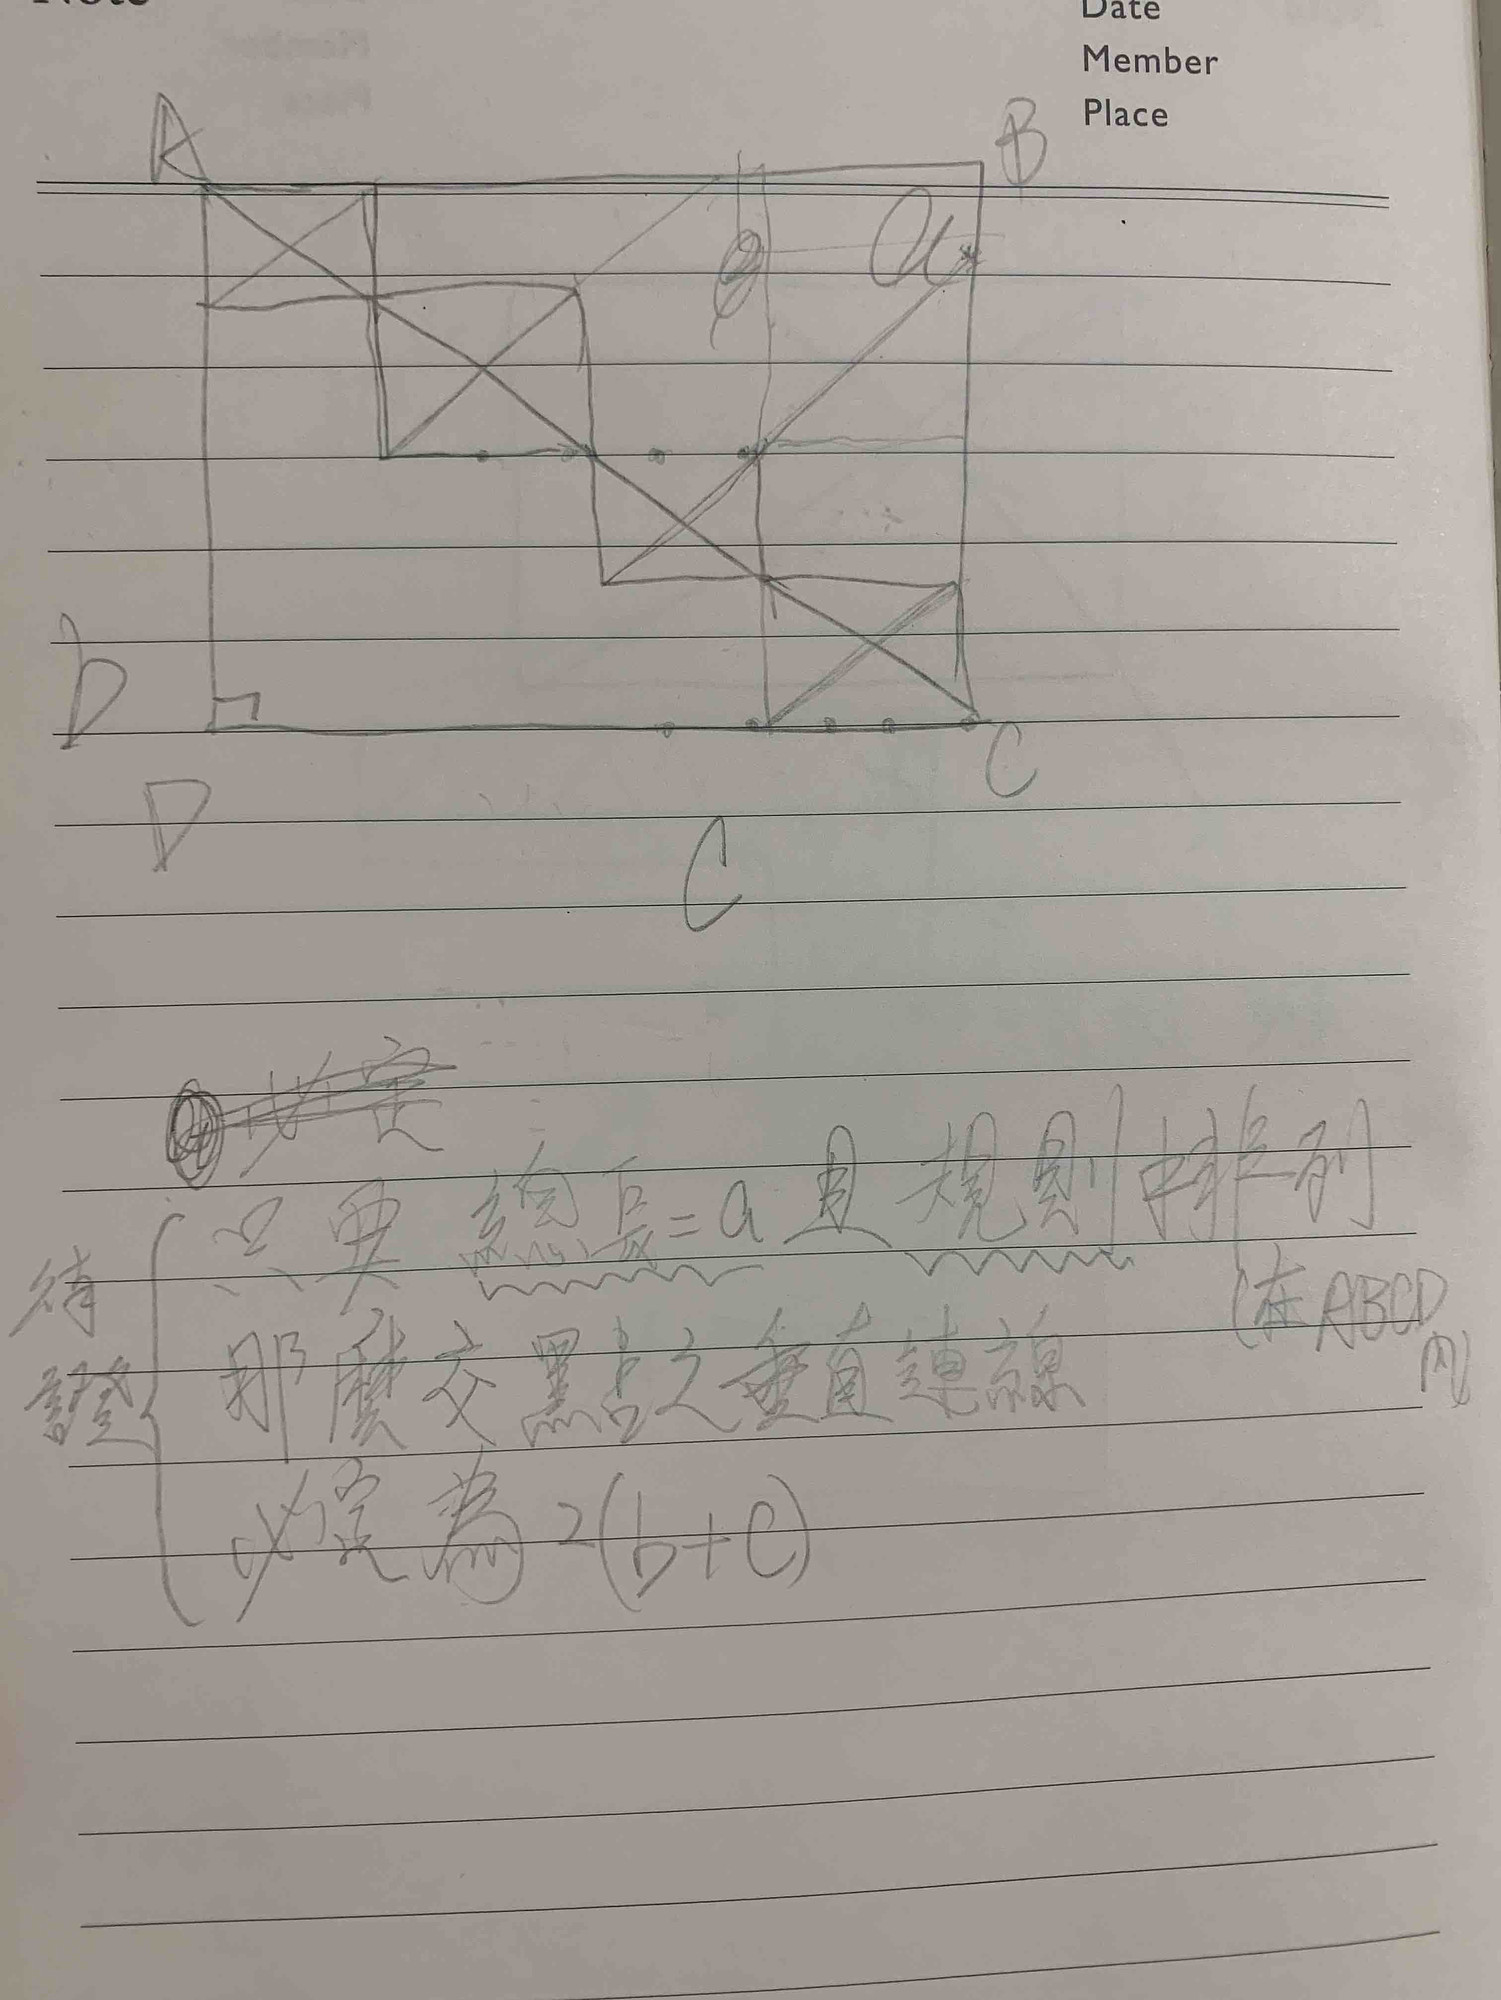 Note
Date
Member
Place
A
B
a
b
C
D
C
必定
只要 總長=a 且 規則排列
(在ABCD內)
那麼交點之垂直連線
必定為2(b+c)
待證